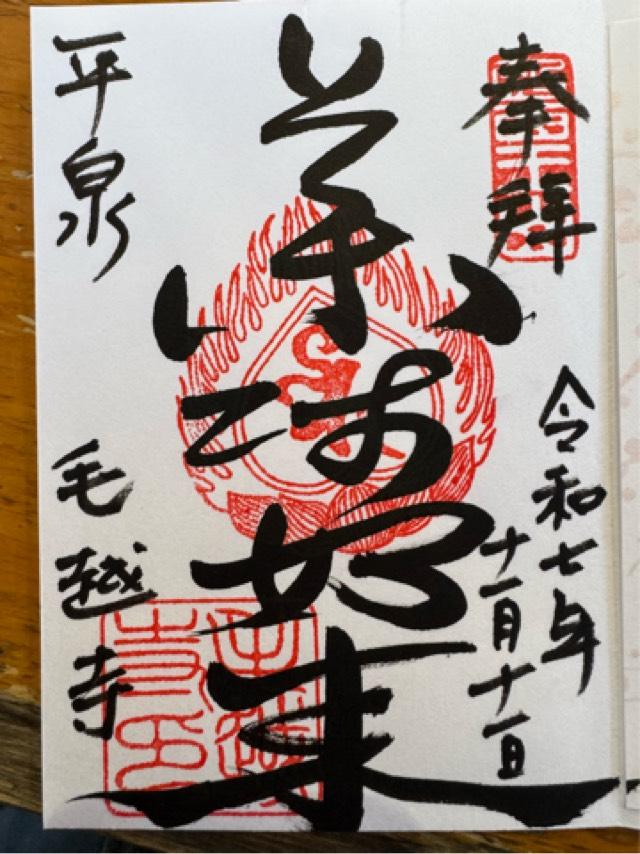 奉拝
令和七年
十一月十一日
薬師如来
平泉
毛越寺